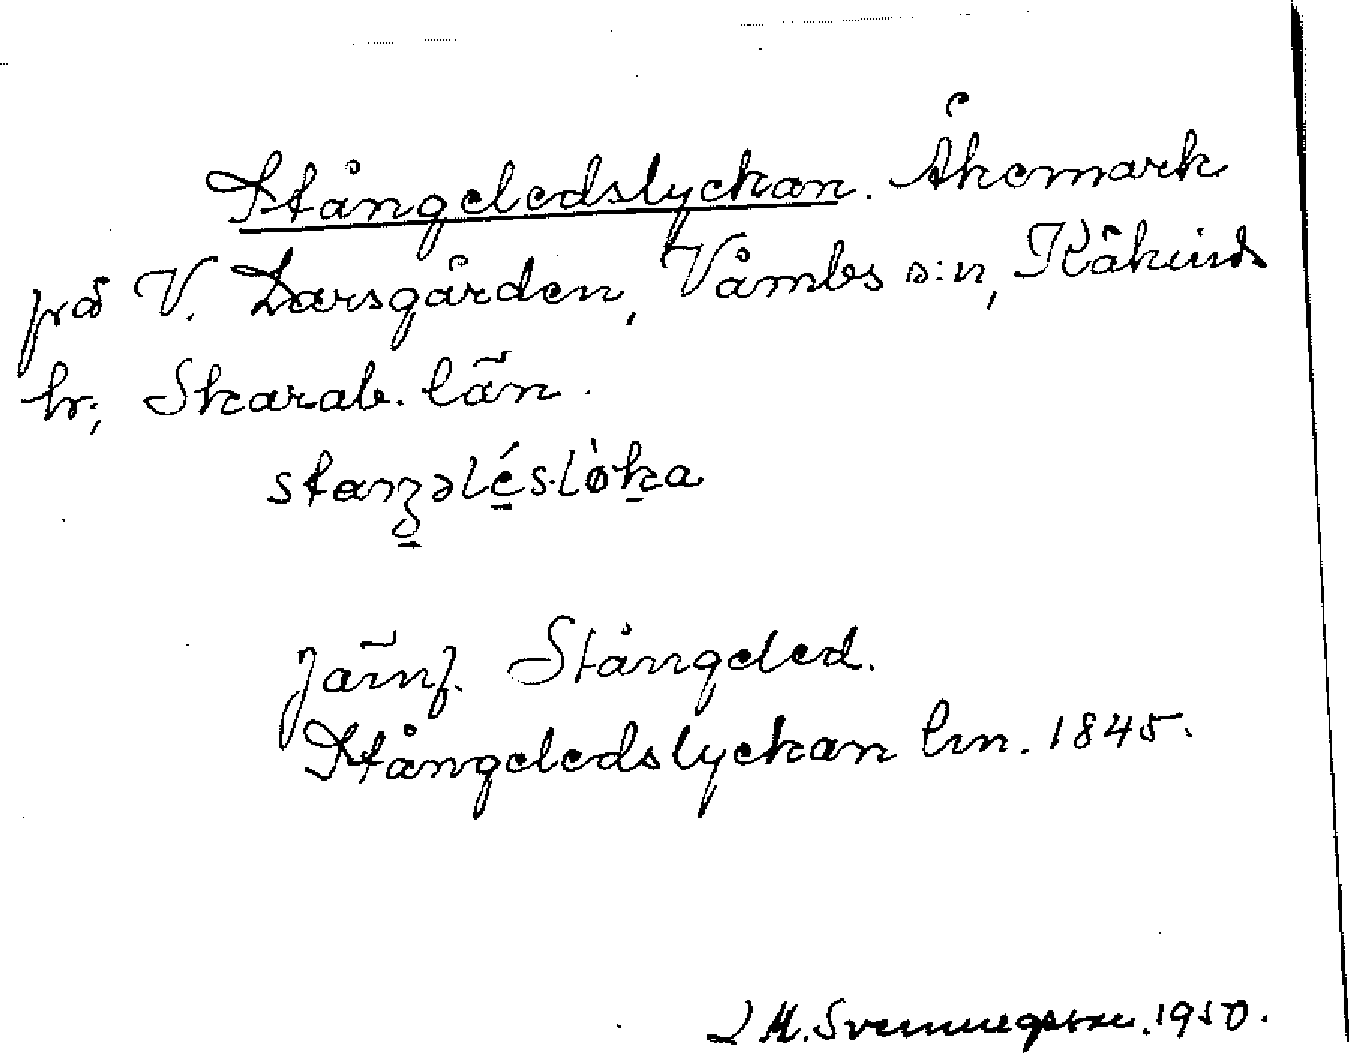 Stångeledslyckan. Åkermark
på V. Larsgården, Våmbs s:n, Kåkinds
hr, Skarab. län.
staŋʒəlés.lòka
Jämf. Stångeled.
Stångeledslyckan lm. 1845.
1950.